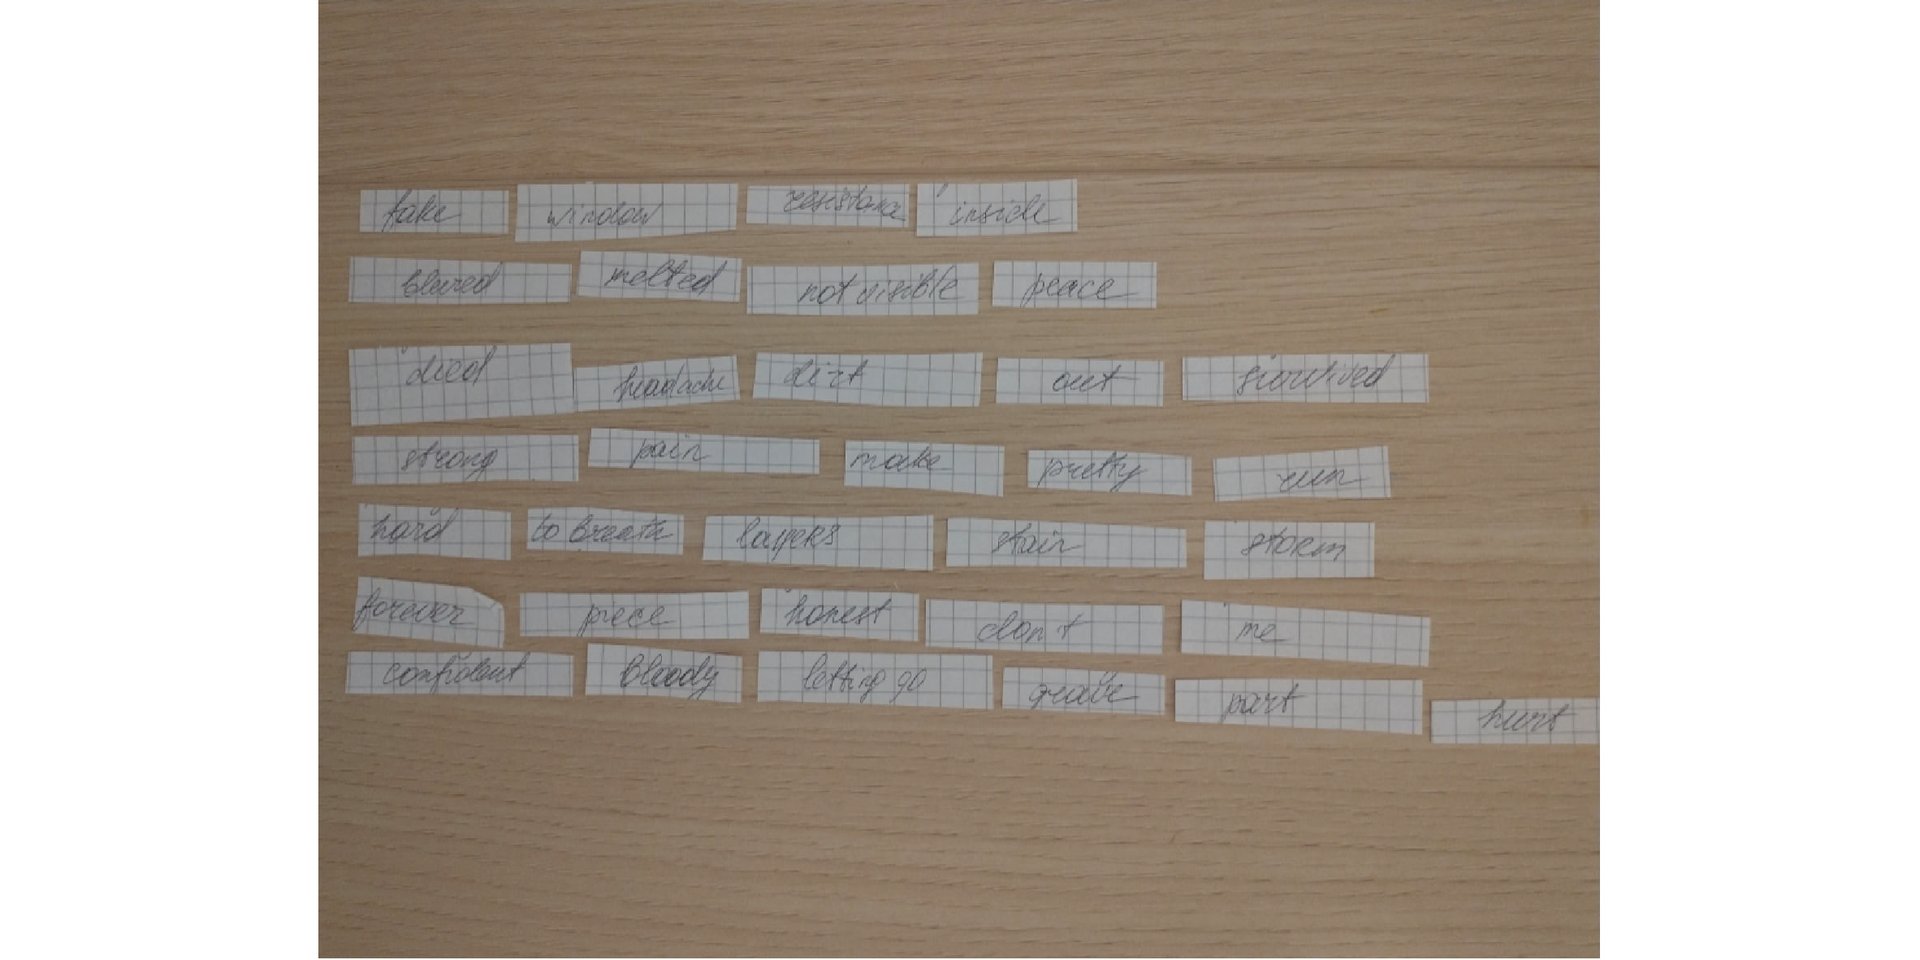 fake window resistance inside
blured melted not visible peace
died headache dirt out siurvived
strong pain make pretty run
hard to breath layers stair storm
forever piece honest don't me
confident bloody letting go grave part hurt